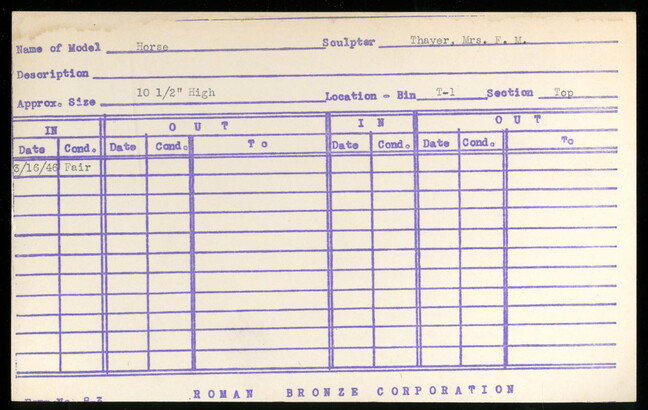 Name of Model Horse Sculptor Thayer, Mrs. F. M.
Description
Approx. Size 10 1/2" High Location - Bin T-1 Section Top
IN OUT IN OUT
Date Cond. Date Cond. To Date Cond. Date Cond. To
3/16/48 Fair
ROMAN BRONZE CORPORATION